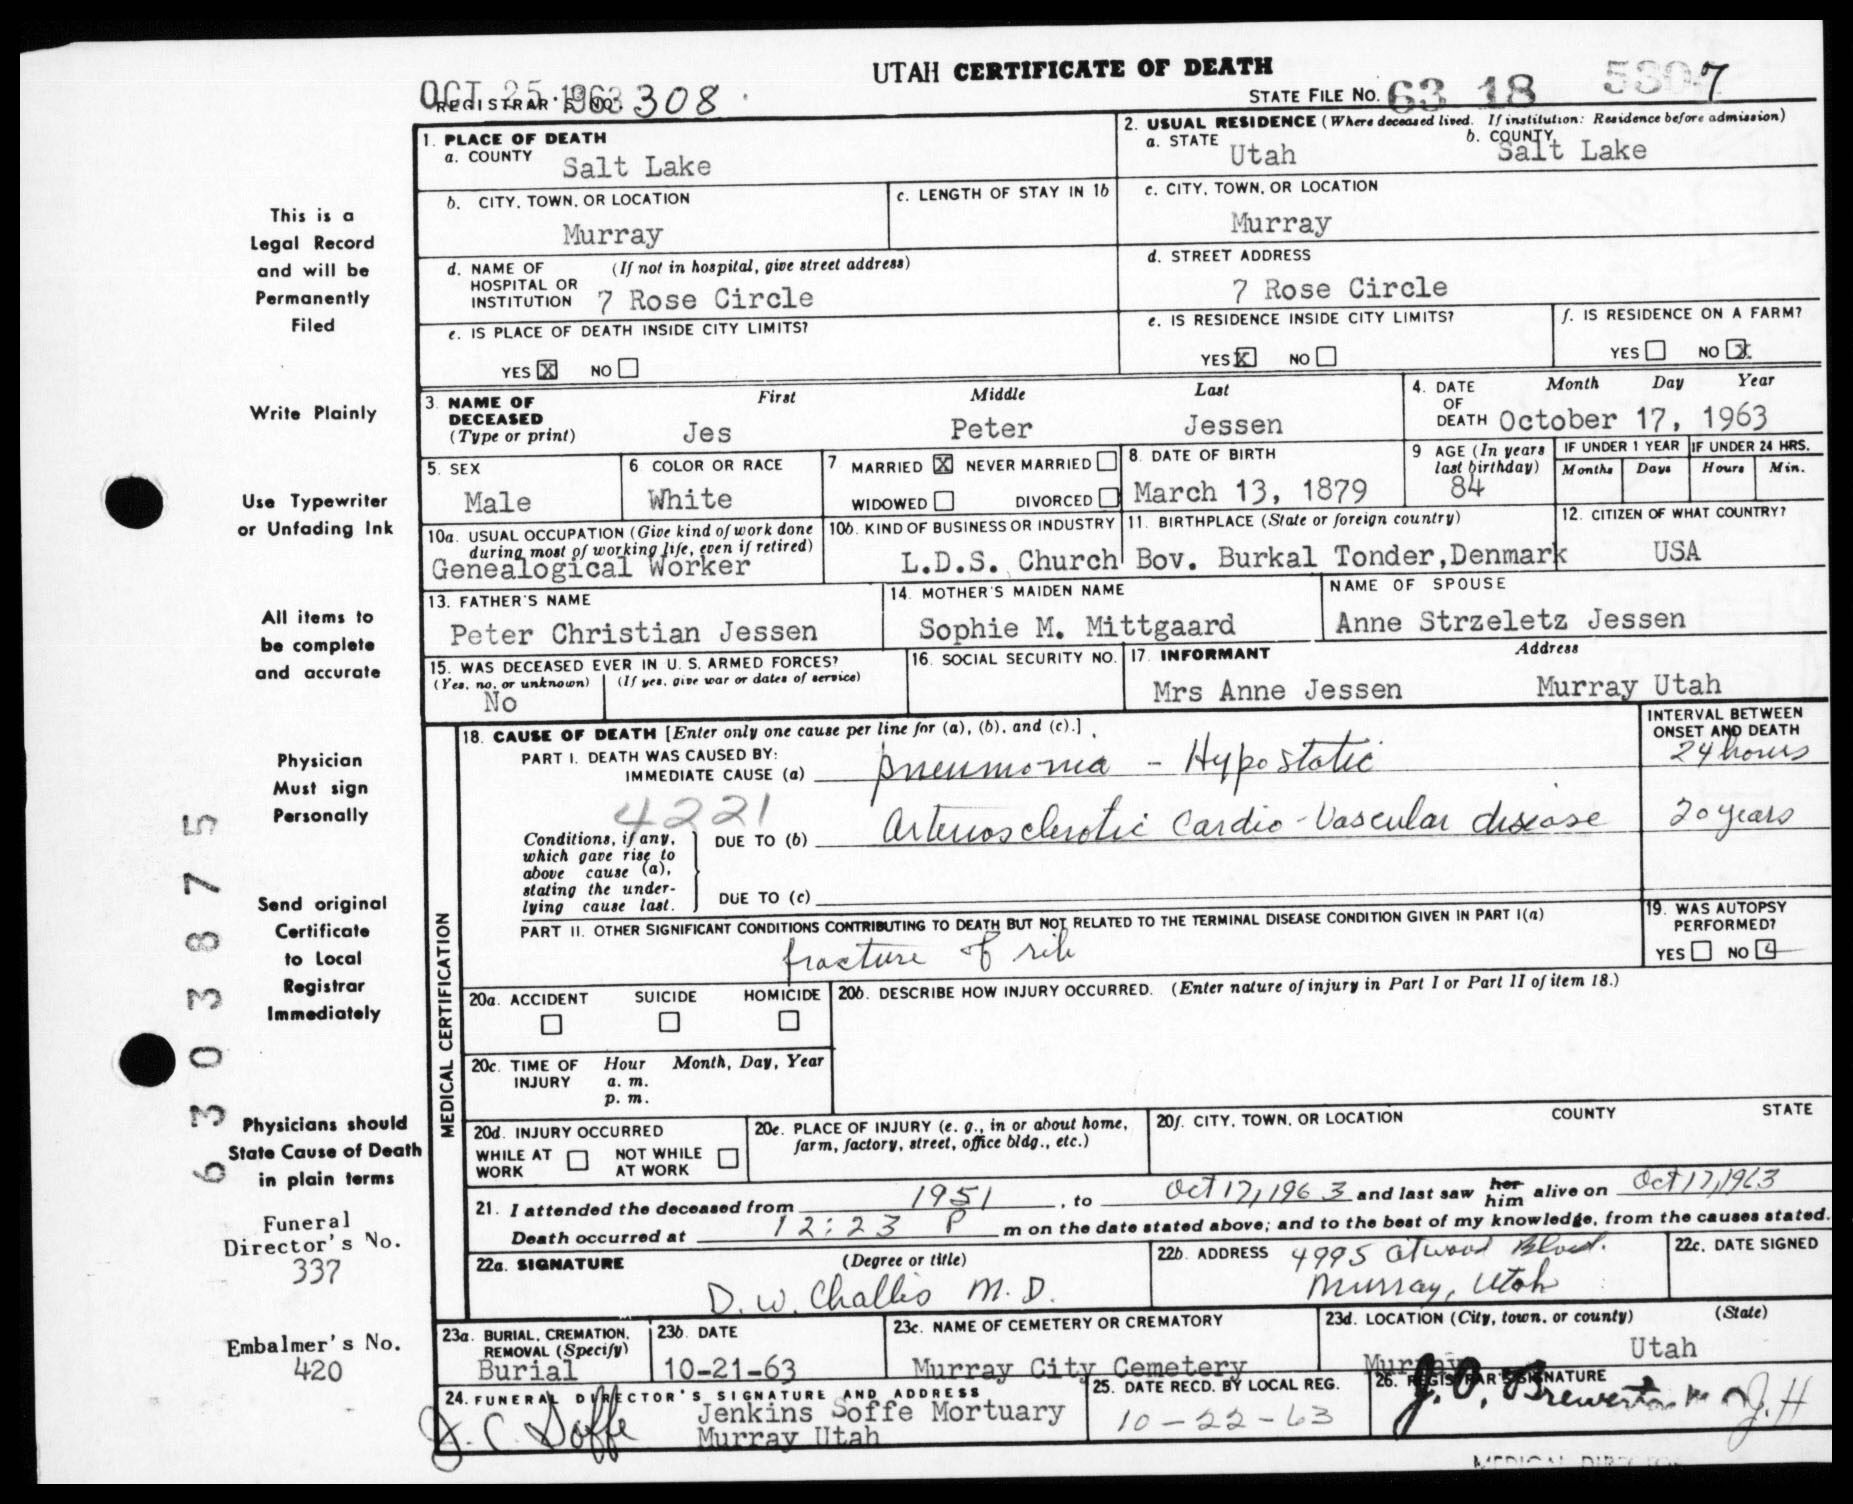 UTAH CERTIFICATE OF DEATH
OCT 25 1963
REGISTRAR'S NO. 308
STATE FILE NO. 63 18 5307
1. PLACE OF DEATH
a. COUNTY
Salt Lake
2. USUAL RESIDENCE (Where deceased lived. If institution: Residence before admission)
a. STATE
Utah
b. COUNTY
Salt Lake
b. CITY, TOWN, OR LOCATION
Murray
c. LENGTH OF STAY IN 1b
c. CITY, TOWN, OR LOCATION
Murray
d. NAME OF HOSPITAL OR INSTITUTION (If not in hospital, give street address)
7 Rose Circle
d. STREET ADDRESS
7 Rose Circle
e. IS PLACE OF DEATH INSIDE CITY LIMITS?
YES X NO
e. IS RESIDENCE INSIDE CITY LIMITS?
YES X NO
f. IS RESIDENCE ON A FARM?
YES NO X
3. NAME OF DECEASED (Type or print)
First Middle Last
Jes Peter Jessen
4. DATE OF DEATH
Month Day Year
October 17, 1963
5. SEX
Male
6. COLOR OR RACE
White
7. MARRIED X NEVER MARRIED
WIDOWED DIVORCED
8. DATE OF BIRTH
March 13, 1879
9. AGE (In years last birthday)
84
IF UNDER 1 YEAR
Months Days
IF UNDER 24 HRS.
Hours Min.
10a. USUAL OCCUPATION (Give kind of work done during most of working life, even if retired)
Genealogical Worker
10b. KIND OF BUSINESS OR INDUSTRY
L.D.S. Church
11. BIRTHPLACE (State or foreign country)
Bov. Burkal Tonder, Denmark
12. CITIZEN OF WHAT COUNTRY?
USA
13. FATHER'S NAME
Peter Christian Jessen
14. MOTHER'S MAIDEN NAME
Sophie M. Mittgaard
NAME OF SPOUSE
Anne Strzeletz Jessen
15. WAS DECEASED EVER IN U. S. ARMED FORCES?
(Yes, no, or unknown) (If yes, give war or dates of service)
No
16. SOCIAL SECURITY NO.
17. INFORMANT Address
Mrs Anne Jessen Murray Utah
MEDICAL CERTIFICATION
18. CAUSE OF DEATH [Enter only one cause per line for (a), (b), and (c).]
INTERVAL BETWEEN ONSET AND DEATH
PART I. DEATH WAS CAUSED BY:
IMMEDIATE CAUSE (a) pneumonia - Hypostatic
24 hours
4221
Conditions, if any, which gave rise to above cause (a), stating the underlying cause last.
DUE TO (b) Arteriosclerotic Cardio-Vascular disease
20 years
DUE TO (c)
PART II. OTHER SIGNIFICANT CONDITIONS CONTRIBUTING TO DEATH BUT NOT RELATED TO THE TERMINAL DISEASE CONDITION GIVEN IN PART I(a)
fracture of rib
19. WAS AUTOPSY PERFORMED?
YES NO
20a. ACCIDENT SUICIDE HOMICIDE
20b. DESCRIBE HOW INJURY OCCURRED. (Enter nature of injury in Part I or Part II of item 18.)
20c. TIME OF INJURY
Hour Month, Day, Year
a. m.
p. m.
20d. INJURY OCCURRED
WHILE AT WORK NOT WHILE AT WORK
20e. PLACE OF INJURY (e. g., in or about home, farm, factory, street, office bldg., etc.)
20f. CITY, TOWN, OR LOCATION COUNTY STATE
21. I attended the deceased from 1951, to Oct 17, 1963 and last saw her him alive on Oct 17, 1963
Death occurred at 12:23 P m on the date stated above; and to the best of my knowledge, from the causes stated.
22a. SIGNATURE (Degree or title)
D. W. Challis M. D.
22b. ADDRESS 4995 Atwood Blvd.
Murray, Utah
22c. DATE SIGNED
23a. BURIAL, CREMATION, REMOVAL (Specify)
Burial
23b. DATE
10-21-63
23c. NAME OF CEMETERY OR CREMATORY
Murray City Cemetery
23d. LOCATION (City, town, or county) (State)
Murray Utah
24. FUNERAL DIRECTOR'S SIGNATURE AND ADDRESS
J. C. Soffe
Jenkins Soffe Mortuary
Murray Utah
25. DATE RECD. BY LOCAL REG.
10-22-63
26. REGISTRAR'S SIGNATURE
J. O. Brewerton J.H
MEDICAL DIRECTOR
This is a
Legal Record
and will be
Permanently
Filed
Write Plainly
Use Typewriter
or Unfading Ink
All items to
be complete
and accurate
Physician
Must sign
Personally
Send original
Certificate
to Local
Registrar
Immediately
Physicians should
State Cause of Death
in plain terms
Funeral
Director's No.
337
Embalmer's No.
420
6303875